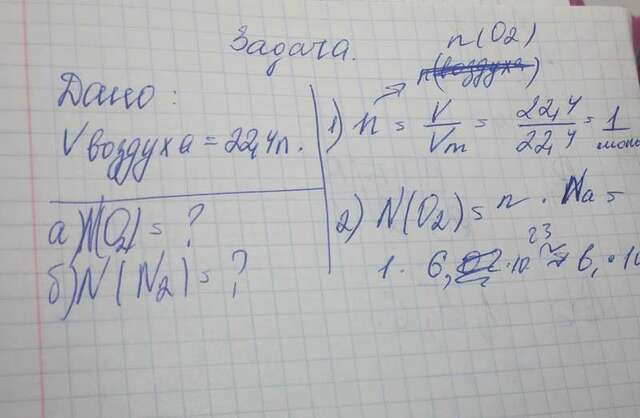 Задача.
Дано:
V воздуха = 22,4 л.
а) N(O2) = ?
б) N(N2) = ?
n(O2)
n(воздуха)
1) n = V/Vm = 22,4/22,4 = 1 моль
2) N(O2) = n · Na =
1 · 6,02 · 10^23 ≈ 6, · 10